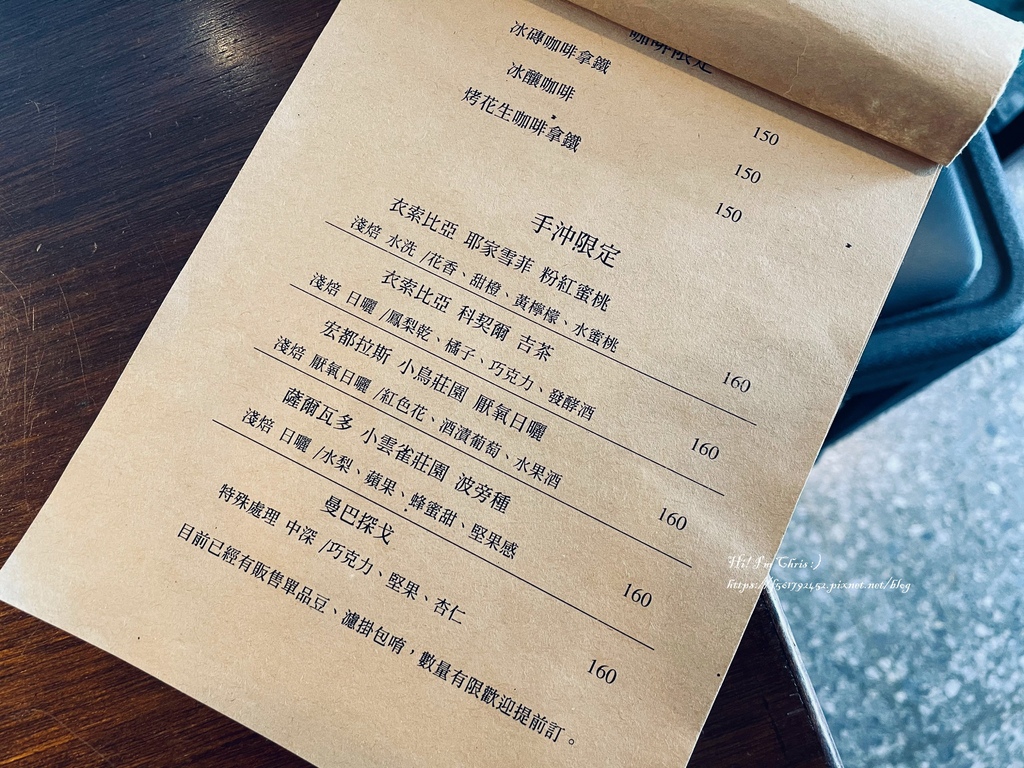 咖啡限定
冰磚咖啡拿鐵 150
冰釀咖啡 150
烤花生咖啡拿鐵 150
手沖限定
衣索比亞 耶家雪菲 粉紅蜜桃
淺焙 水洗 /花香、甜橙、黃檸檬、水蜜桃 160
衣索比亞 科契爾 吉茶
淺焙 日曬 /鳳梨乾、橘子、巧克力、發酵酒 160
宏都拉斯 小鳥莊園 厭氧日曬
淺焙 厭氧日曬 /紅色花、酒漬葡萄、水果酒 160
薩爾瓦多 小雲雀莊園 波旁種
淺焙 日曬 /水梨、蘋果、蜂蜜甜、堅果感 160
曼巴探戈
特殊處理 中深 /巧克力、堅果、杏仁 160
目前已經有販售單品豆、濾掛包唷，數量有限歡迎提前訂。
Hi! I'm Chris :)
https://f501792452.pixnet.net/blog